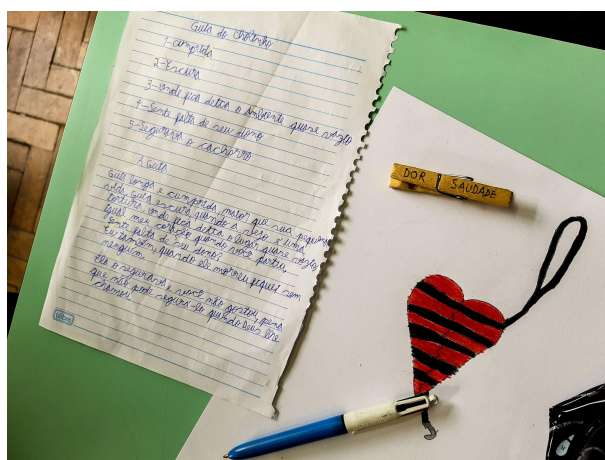 Guia do Chorinho
1-cumprida
2-Escura
3-onde fica deixa o ambiente quase vazio
4-Sente falta de seu dono
5-Segurava o cachorro
A Guia
Guia longa e cumprida, maior que sua pequena
vida. Guia escura, quando a vejo é uma
tortura, onde fica deixa o lugar quase vazio,
igual meu coração quando você partiu.
Sente falta de seu dono?
Eu também, quando ele morreu fiquei sem
ninguém.
Ela o segurava e você não gostou, pena
que não pode segura-lo quando Deus lhe
chamou.
DOR
SAUDADE